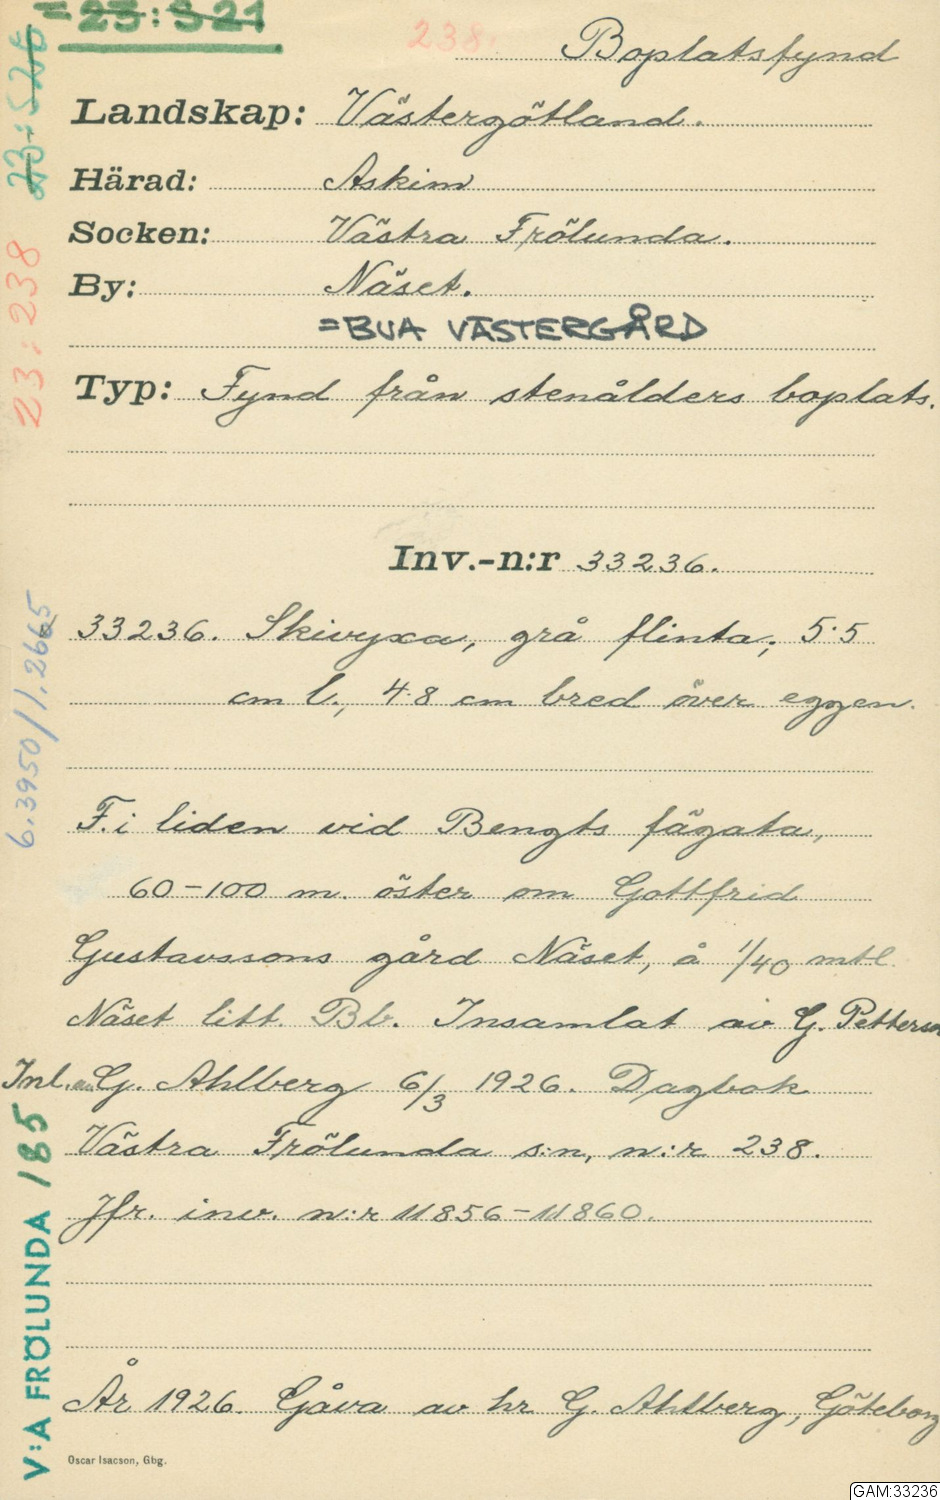 = 23:321
238.
Boplatsfynd
Landskap: Västergötland.
Härad: Askim
Socken: Västra Frölunda.
By: Näset.
=BUA VÄSTERGÅRD
Typ: Fynd från stenålders boplats.
Inv.-n:r 33236.
33236. Skivyxa, grå flinta; 5.5
cm l., 4.8 cm bred över eggen.
F. i liden vid Bengts fägata,
60-100 m. öster om Gottfrid
Gustavssons gård Näset, å 1/40 mtl.
Näset litt. Bb. Insamlat av G. Petterson
Inl. av G. Ahlberg 6/3 1926. Dagbok
Västra Frölunda s:n, n:r 238.
Jfr. inv. n:r 11856-11860.
År 1926. Gåva av hr G. Ahlberg, Göteborg
Oscar Isacson, Gbg.
23:238
6.3950/1.2665
V:A FRÖLUNDA 185
GAM:33236